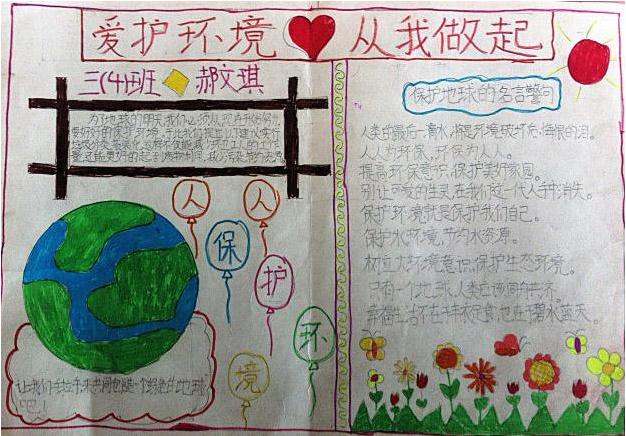 爱护环境 从我做起
三(4)班 郝文琪
为了地球的明天,我们必须从现在开始努力,
爱好好的保护环境,于此我们提出以下建议实行
垃圾分类,
人
人
保
护
环
境
让我们手拉手,来共同创造一个绿色的地球
吧!
保护地球的名言警句
人类的最后一滴水,将是环境破坏后,悔恨的泪。
人人为环保,环保为人人。
提高环保意识,保护美好家园。
别让可爱的生灵,在我们这一代人手中消失。
保护环境就是保护我们自己。
保护水环境,节约水资源。
树立大环境意识,保护生态环境。
只有一个地球,人类应该同舟共济。
幸福生活不在丰衣足食,也在于碧水蓝天。